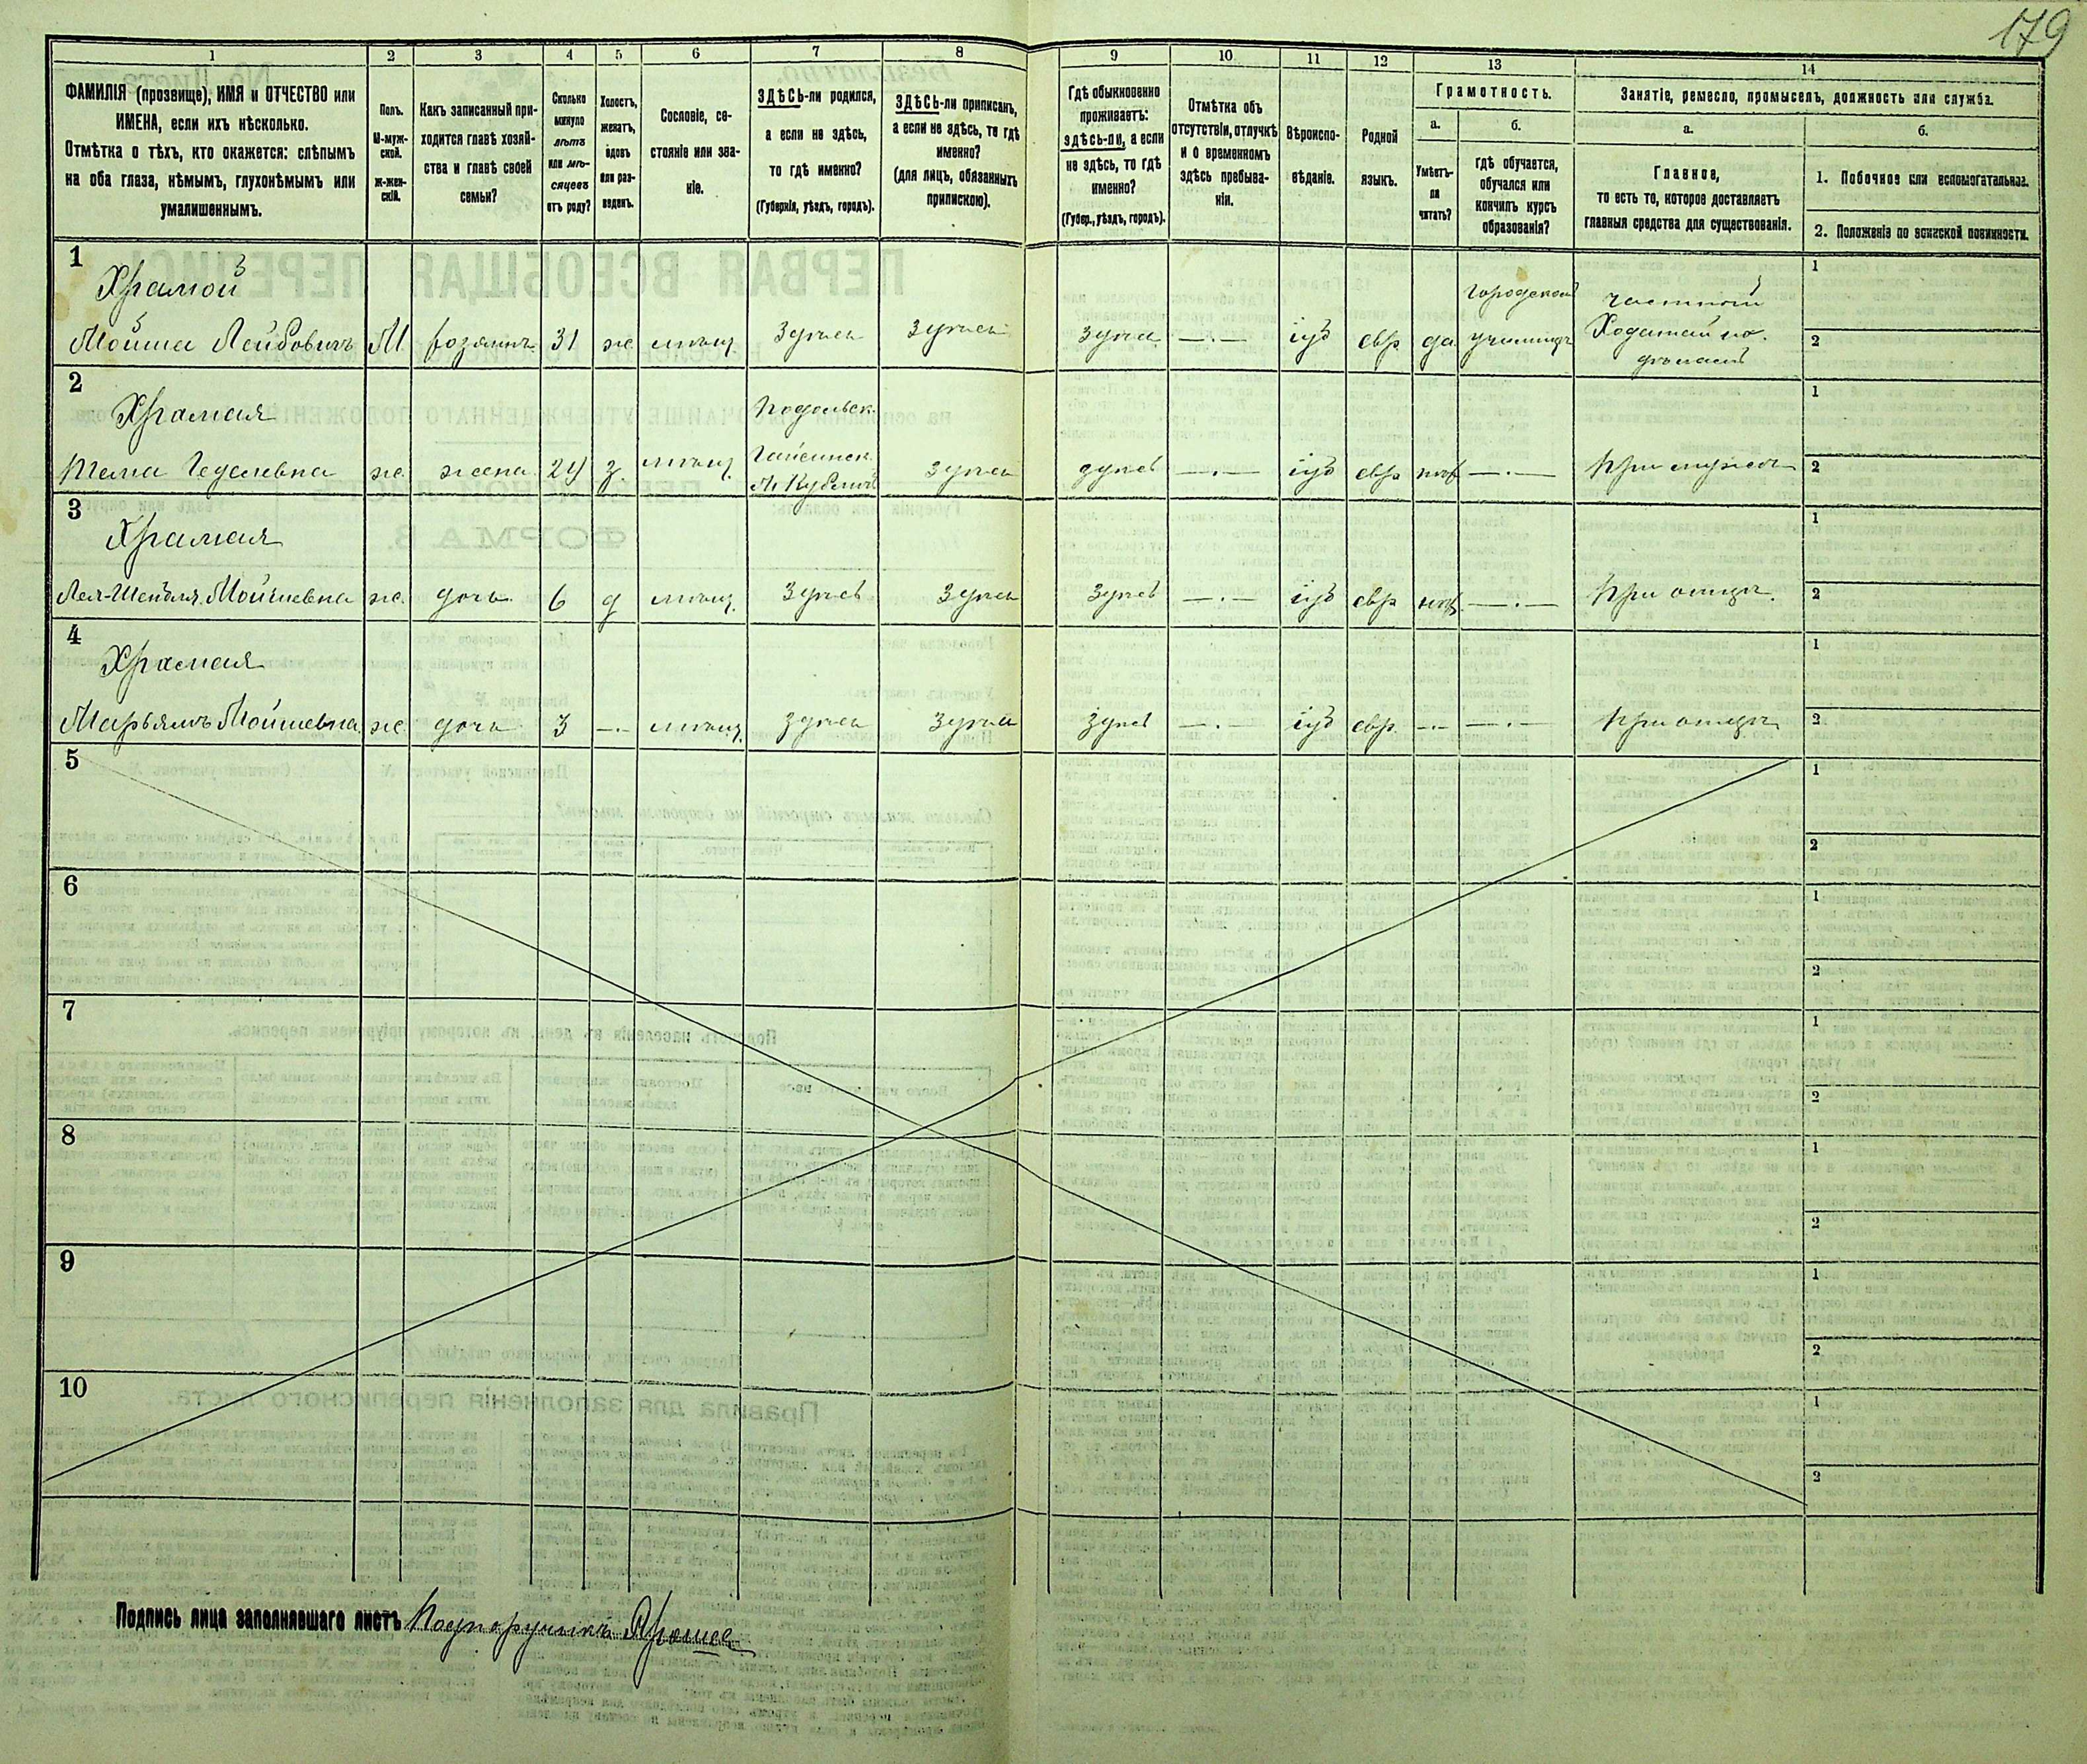 179
1
2
3
4
5
6
7
8
9
10
11
12
13
14
ФАМИЛІЯ (прозвище), ИМЯ и ОТЧЕСТВО или
ИМЕНА, если ихъ нѣсколько.
Отмѣтка о тѣхъ, кто окажется: слѣпымъ
на оба глаза, нѣмымъ, глухонѣмымъ или
умалишеннымъ.
Полъ.
М-муж-
ской.
Ж-жен-
скій.
Какъ записанный при-
ходится главѣ хозяй-
ства и главѣ своей
семьи?
Сколько
минуло
лѣтъ
или мѣ-
сяцевъ
отъ роду?
Холостъ,
женатъ,
вдовъ
или раз-
веденъ.
Сословіе, со-
стояніе или зва-
ніе.
ЗДѢСЬ-ли родился,
а если не здѣсь,
то гдѣ именно?
(Губернія, уѣздъ, городъ).
ЗДѢСЬ-ли приписанъ,
а если не здѣсь, то гдѣ
именно?
(для лицъ, обязанныхъ
припискою).
Гдѣ обыкновенно
проживаетъ:
здѣсь-ли, а если
не здѣсь, то гдѣ
именно?
(Губер., уѣздъ, городъ).
Отмѣтка объ
отсутствіи, отлучкѣ
и о временномъ
здѣсь пребыва-
ніи.
Вѣроиспо-
вѣданіе.
Родной
языкъ.
Грамотность.
а.
Умѣетъ-
ли
читать?
б.
Гдѣ обучается,
обучался или
кончилъ курсъ
образованія?
Занятіе, ремесло, промыселъ, должность или служба.
а.
Главное,
то есть то, которое доставляетъ
главныя средства для существованія.
б.
1. Побочное или вспомогательное.
2. Положеніе по воинской повинности.
1
Храмой
Мойша Лейбовичъ М хозяинъ 31 ж мѣщ здѣсь здѣсь здѣсь —.— іуд евр да
Городской училищѣ
частный
Ходатай по
дѣламъ
1
2
2
Храмая
ж. жена 24 з. мѣщ.
Подольск.
Гайсинск.
здѣсь здѣсь —.— іуд евр нѣт —.— При мужѣ
1
2
3
Храмая
Мойшевна ж. дочь 6 д мѣщ. здѣсь здѣсь здѣсь —.— іуд евр нѣт —.— При отцѣ.
1
2
4
Храмая
Марьямъ Мойшевна ж. дочь 3 —.— мѣщ. здѣсь здѣсь здѣсь —.— іуд евр. —.— —.— При отцѣ
1
2
5
1
2
6
1
2
7
1
2
8
1
2
9
1
2
10
1
2
Подпись лица заполнявшаго листъ Подпоручикъ